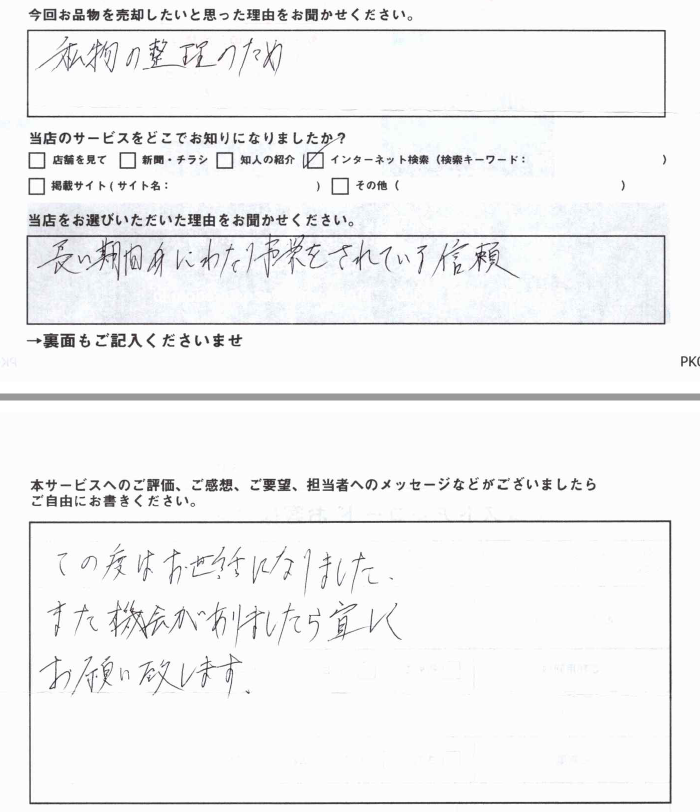 今回お品物を売却したいと思った理由をお聞かせください。
私物の整理のため
当店のサービスをどこでお知りになりましたか?
店舗を見て 新聞・チラシ 知人の紹介 インターネット検索(検索キーワード: )
掲載サイト(サイト名: ) その他( )
当店をお選びいただいた理由をお聞かせください。
長い期間 にわたり 営をされている信頼
→裏面もご記入くださいませ
PK
本サービスへのご評価、ご感想、ご要望、担当者へのメッセージなどがございましたら
ご自由にお書きください。
この度はお世話になりました、
また機会がありましたら宜しく
お願い致します。